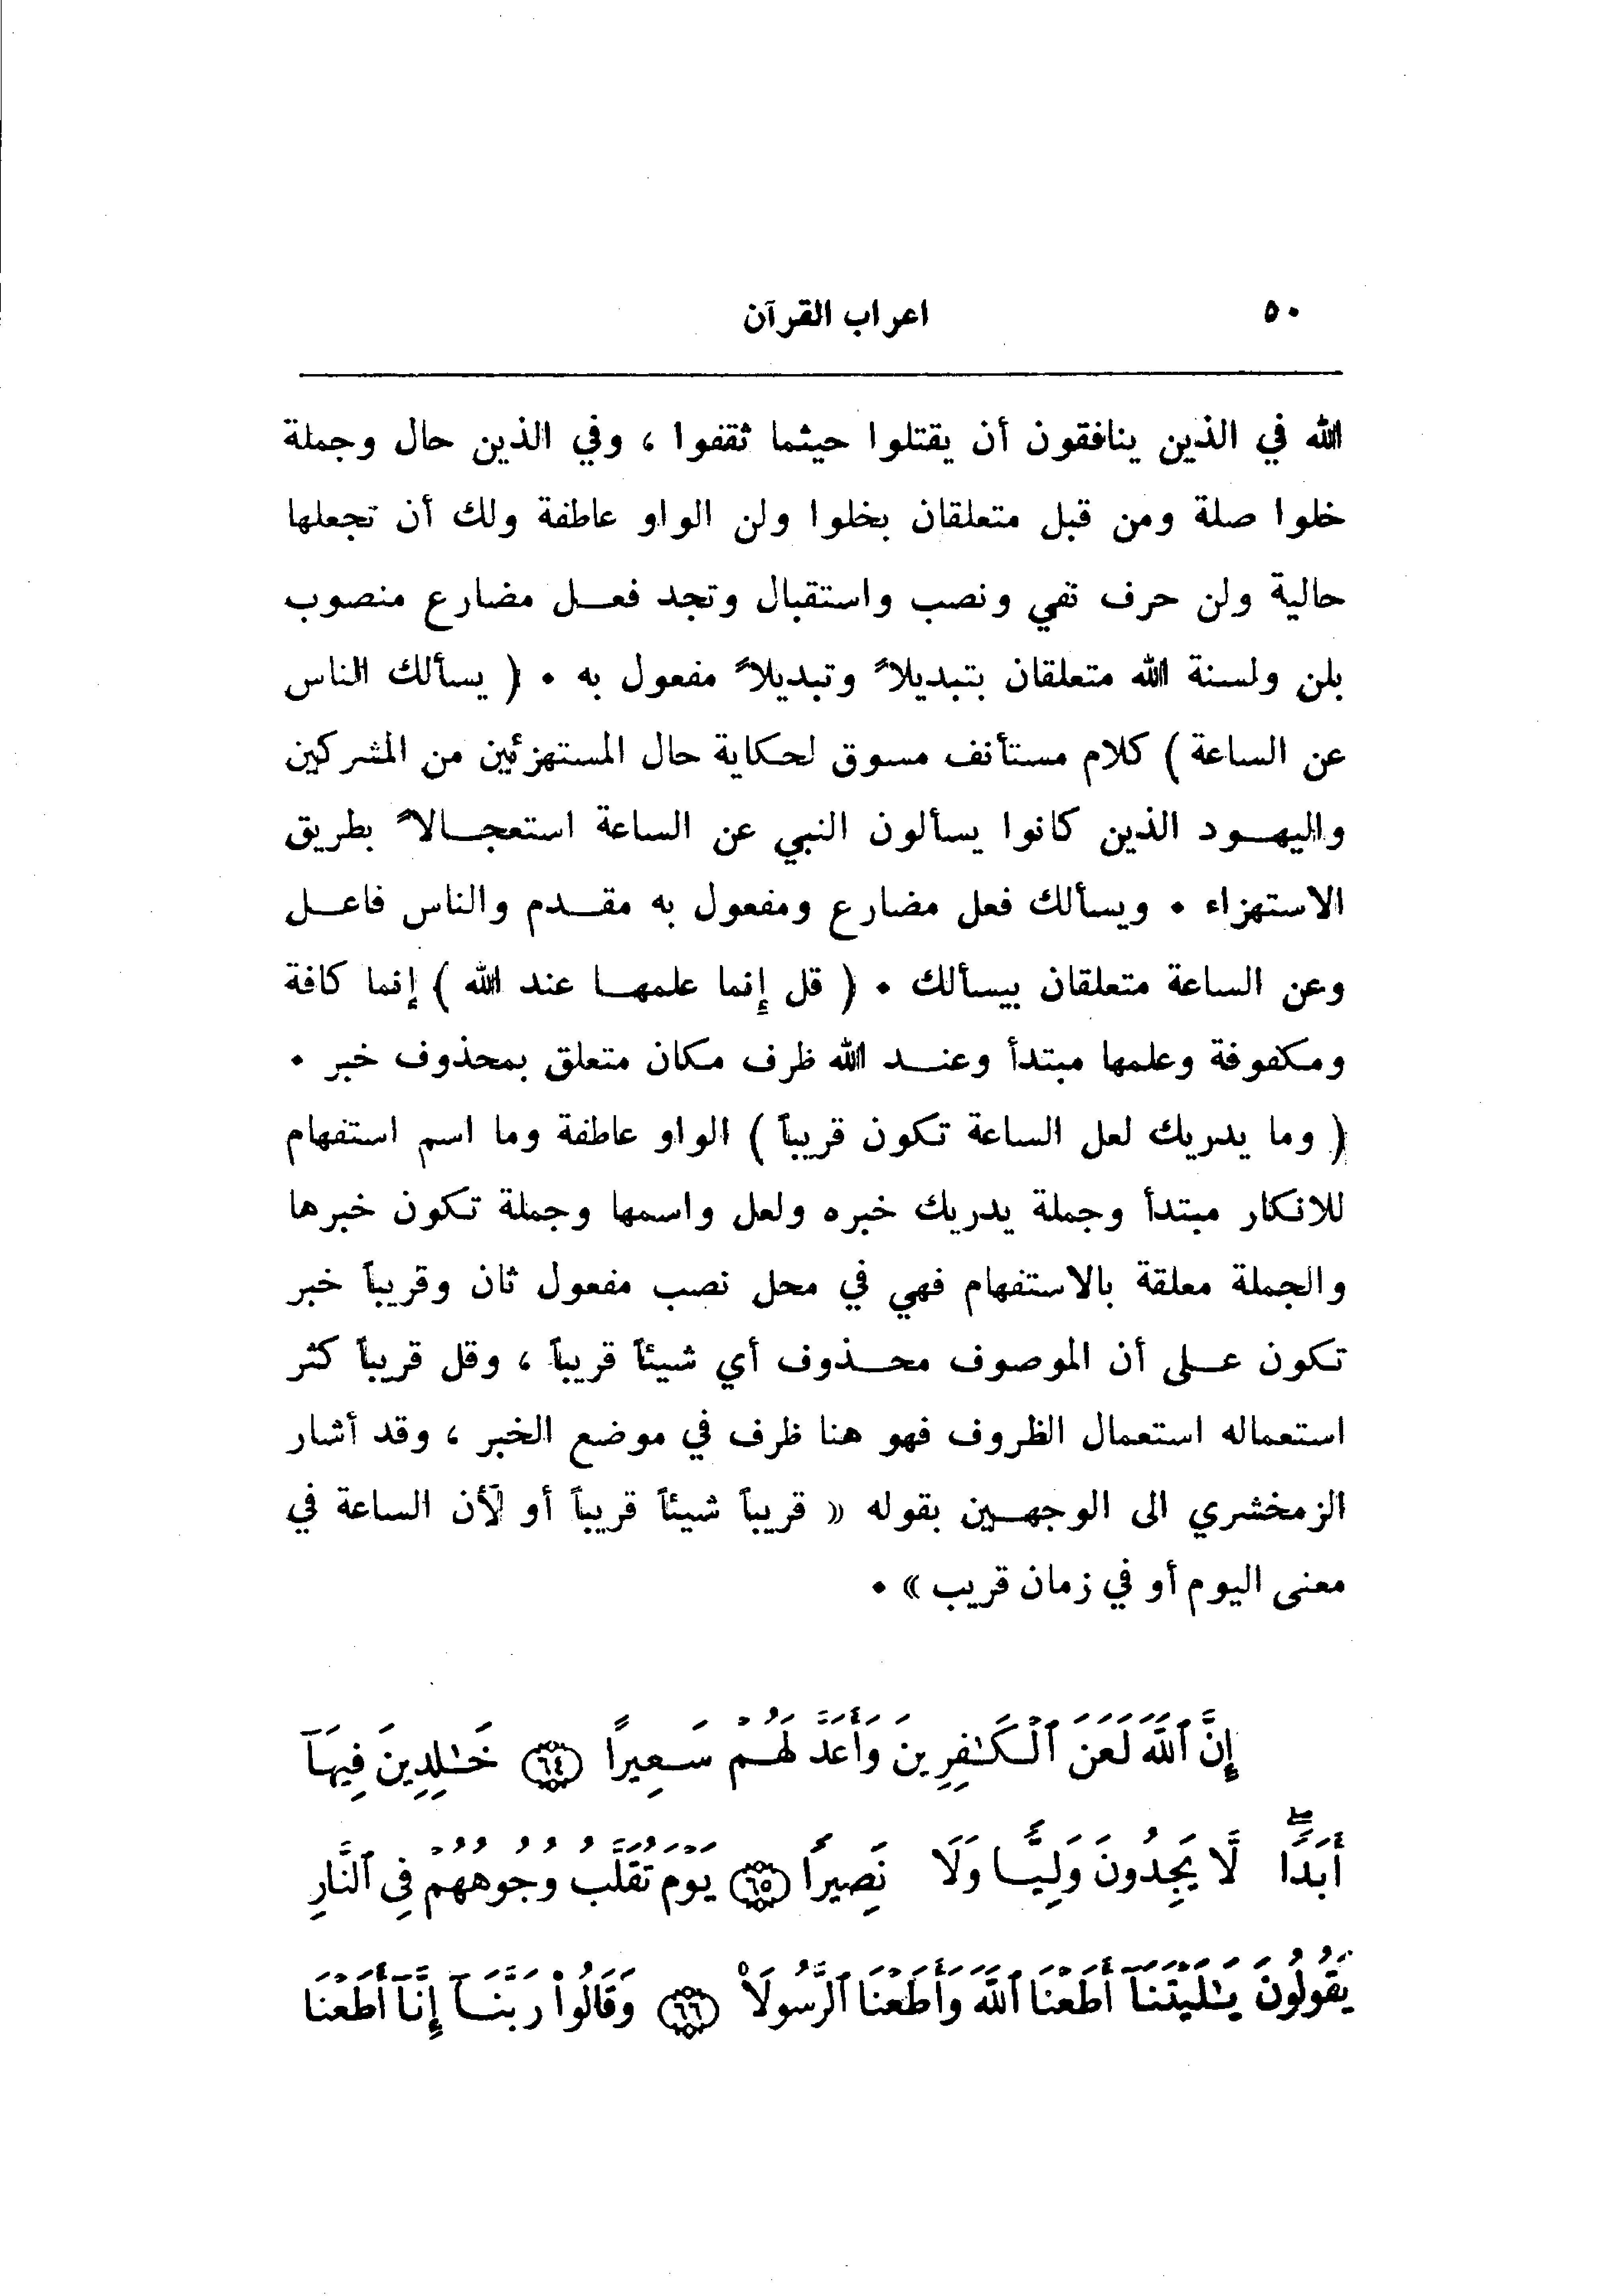 ٥٠ اعراب القرآن
الله في الذين ينافقون أن يقتلوا حيثما ثقفوا ، وفي الذين حال وجملة
خلوا صلة ومن قبل متعلقان بخلوا ولن الواو عاطفة ولك أن تجعلها
حالية ولن حرف نفي ونصب واستقبال وتجد فعل مضارع منصوب
بلن ولسنة الله متعلقان بتبديلاً وتبديلاً مفعول به . ( يسألك الناس
عن الساعة ) كلام مستأنف مسوق لحكاية حال المستهزئين من المشركين
واليهود الذين كانوا يسألون النبي عن الساعة استعجالاً بطريق
الاستهزاء . ويسألك فعل مضارع ومفعول به مقدم والناس فاعل
وعن الساعة متعلقان بيسألك . ( قل إنما علمها عند الله ) إنما كافة
ومكفوفة وعلمها مبتدأ وعند الله ظرف مكان متعلق بمحذوف خبر .
( وما يدريك لعل الساعة تكون قريباً ) الواو عاطفة وما اسم استفهام
للانكار مبتدأ وجملة يدريك خبره ولعل واسمها وجملة تكون خبرها
والجملة معلقة بالاستفهام فهي في محل نصب مفعول ثان وقريباً خبر
تكون على أن الموصوف محذوف أي شيئاً قريباً ، وقل قريباً كثر
استعماله استعمال الظروف فهو هنا ظرف في موضع الخبر ، وقد أشار
الزمخشري الى الوجهين بقوله « قريباً شيئاً قريباً أو لأن الساعة في
معنى اليوم أو في زمان قريب » .
إِنَّ ٱللَّهَ لَعَنَ ٱلْكَـٰفِرِينَ وَأَعَدَّ لَهُمْ سَعِيرًا ٦٤ خَـٰلِدِينَ فِيهَآ
أَبَدًا ۖ لَّا يَجِدُونَ وَلِيًّا وَلَا نَصِيرًا ٦٥ يَوْمَ تُقَلَّبُ وُجُوهُهُمْ فِى ٱلنَّارِ
يَقُولُونَ يَـٰلَيْتَنَآ أَطَعْنَا ٱللَّهَ وَأَطَعْنَا ٱلرَّسُولَا۠ ٦٦ وَقَالُوا۟ رَبَّنَآ إِنَّآ أَطَعْنَا